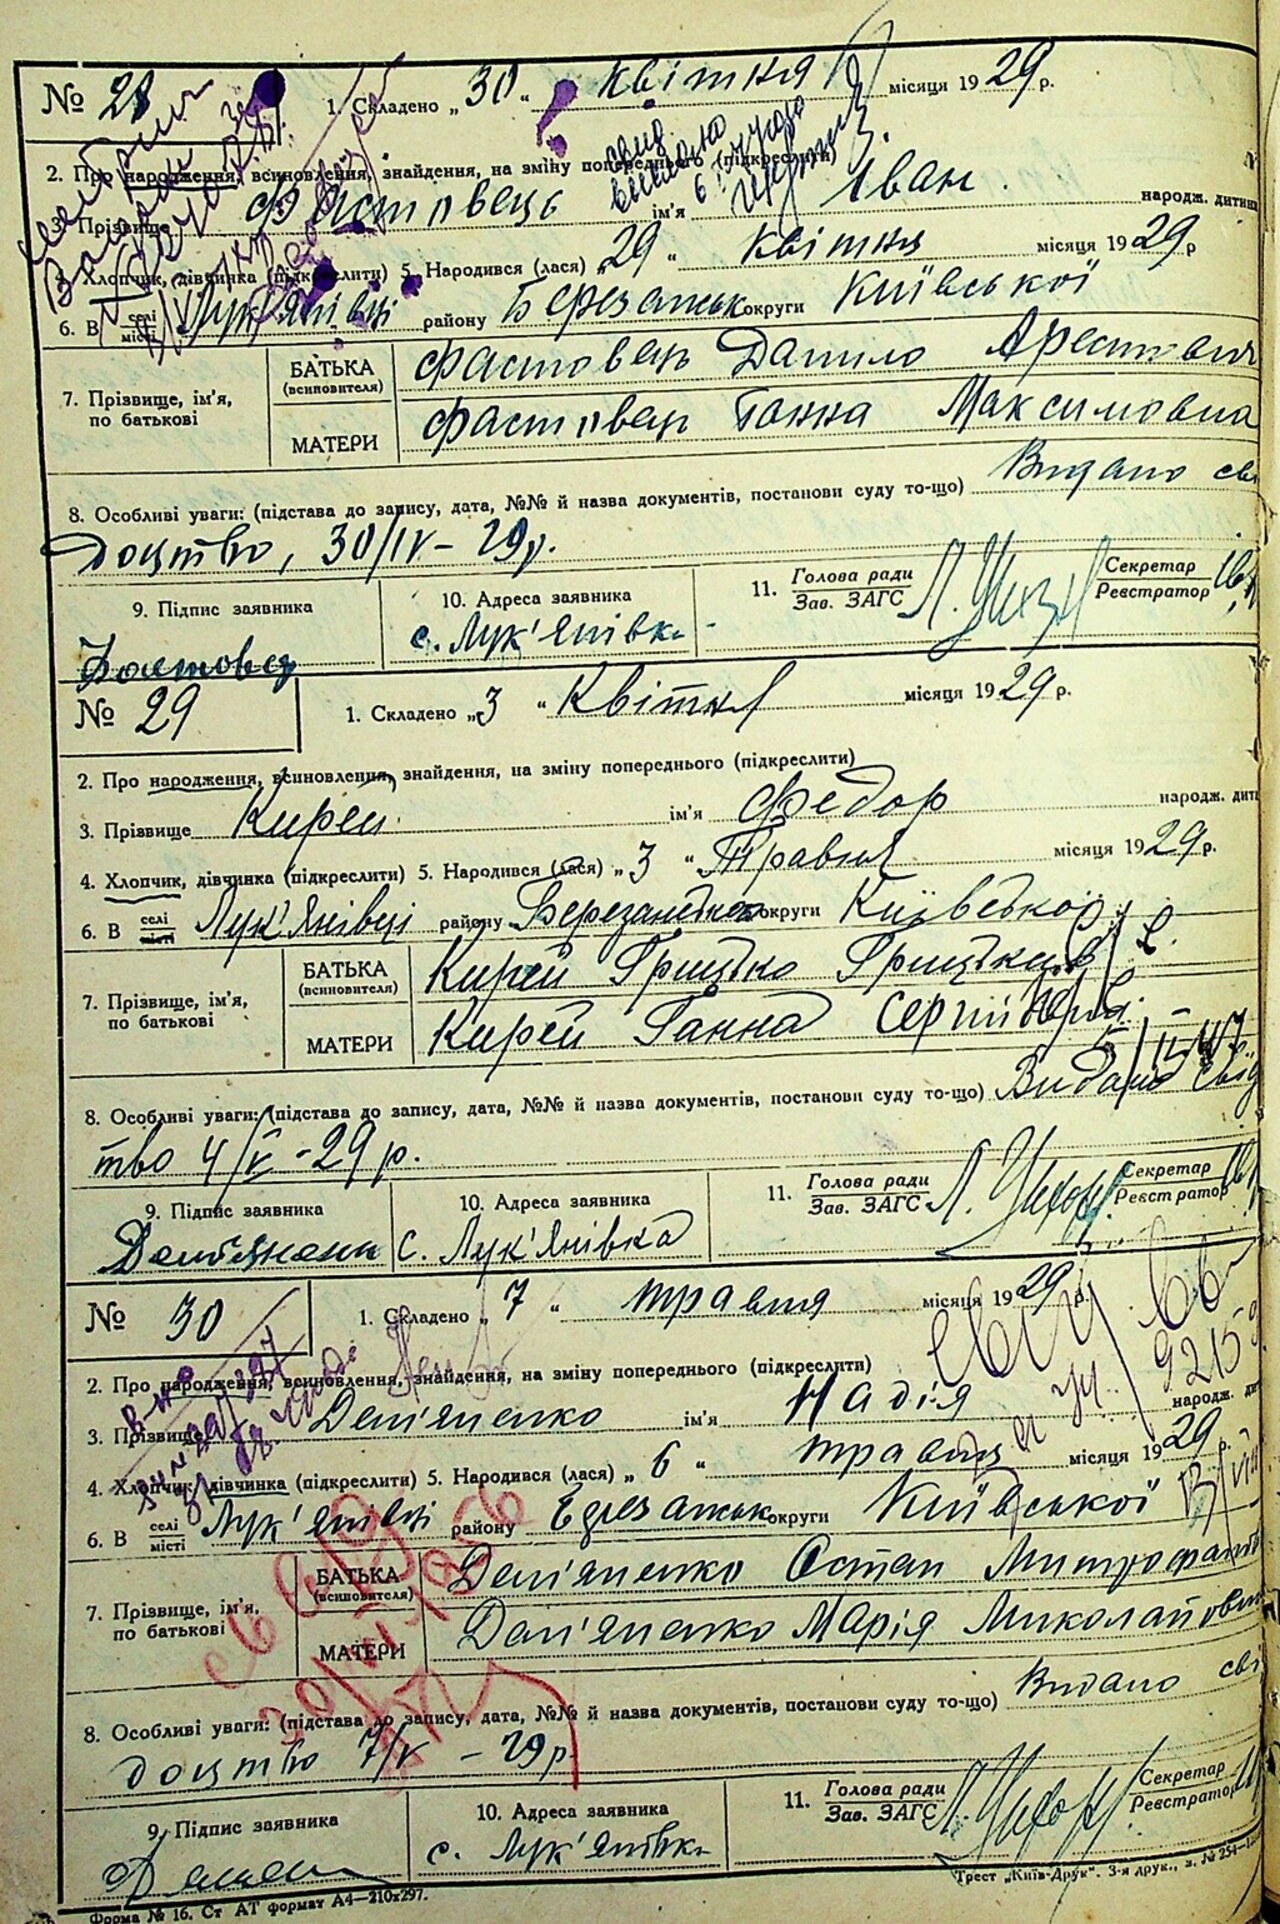 № 28 1. Складено „30“ квітня місяця 1929 р.
2. Про народження, всиновлення, знайдення, на зміну попереднього (підкреслити)
3. Прізвище Фастовець ім'я Іван народж. дитини
4. Хлопчик, дівчинка (підкреслити) 5. Народився (лася) „29“ квітня місяця 1929 р
6. В селі місті Лук'янівці району Березанськ округи Київської
7. Прізвище, ім'я, по батькові
БАТЬКА (всиновителя) Фастовець Данило Арестович
МАТЕРИ Фастовець Ганна Максимовна
8. Особливі уваги: (підстава до запису, дата, №№ й назва документів, постанови суду то-що) Видано сві
доцтво, 30/IV – 29р.
9. Підпис заявника 10. Адреса заявника 11. Голова ради Зав. ЗАГС Секретар Реєстратор
Фастовец с. Лук'янівка
№ 29 1. Складено „3“ Квітня місяця 1929 р.
2. Про народження, всиновлення, знайдення, на зміну попереднього (підкреслити)
3. Прізвище Кирей ім'я Федор народж. дити
4. Хлопчик, дівчинка (підкреслити) 5. Народився (лася) „3“ Травня місяця 1929 р.
6. В селі місті Лук'янівці району Березанської округи Київської
7. Прізвище, ім'я, по батькові
БАТЬКА (всиновителя) Кирей Грицько Грицьков
МАТЕРИ Кирей Ганна Сергіївна
8. Особливі уваги: (підстава до запису, дата, №№ й назва документів, постанови суду то-що) Видано свід
тво 4/V - 29 р.
9. Підпис заявника 10. Адреса заявника 11. Голова ради Зав. ЗАГС Секретар Реєстратор
с. Лук'янівка
№ 30 1. Складено „7“ травня місяця 1929 р.
2. Про народження, всиновлення, знайдення, на зміну попереднього (підкреслити)
3. Прізвище Дем'яненко ім'я Надія народж. ди
4. Хлопчик, дівчинка (підкреслити) 5. Народився (лася) „6“ травня місяця 1929 р.
6. В селі місті Лук'янівці району Березанськ округи Київської
7. Прізвище, ім'я, по батькові
БАТЬКА (всиновителя) Дем'яненко Остап Митрофанов
МАТЕРИ Дем'яненко Марія Миколаївн
8. Особливі уваги: (підстава до запису, дата, №№ й назва документів, постанови суду то-що) Видано сві
доцтво 7/V – 29р.
9. Підпис заявника 10. Адреса заявника 11. Голова ради Зав. ЗАГС Секретар Реєстратор
с. Лук'янівка
Форма № 16. Ст АТ формат А4—210х297. Трест „Київ-Друк“. 3-я друк., з. № 254—